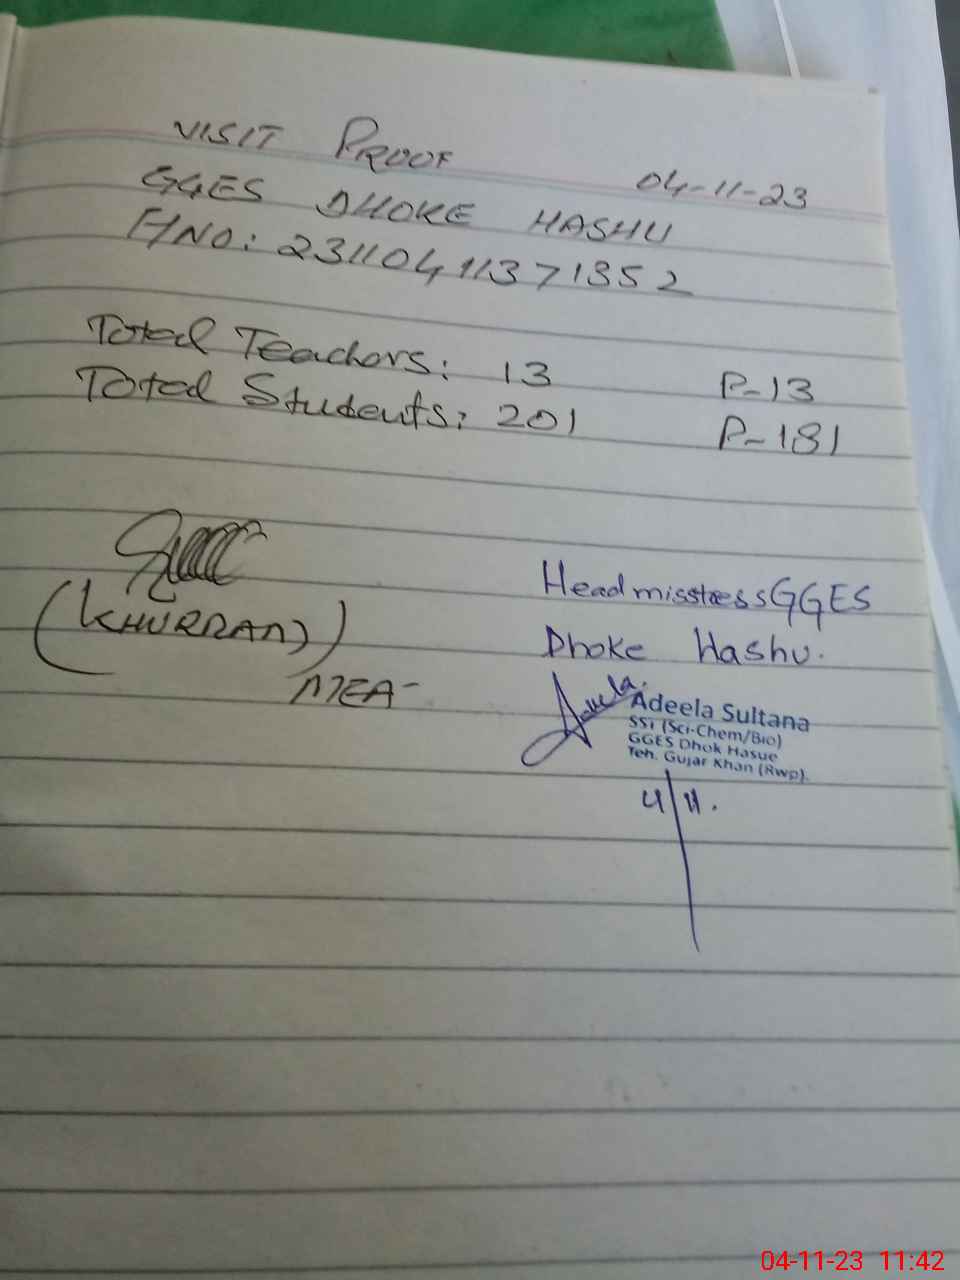 VISIT PROOF
04-11-23
GGES DHOKE HASHU
F/NO: 2311041371352
Total Teachers: 13 P-13
Total Students: 201 P-181
(KHURRAM)
MEA-
Headmisstress GGES
Dhoke Hashu.
Adeela.
Adeela Sultana
SST (Sci-Chem/Bio)
GGES Dhok Hasue
Teh. Gujar Khan (Rwp).
4/11.
04-11-23 11:42